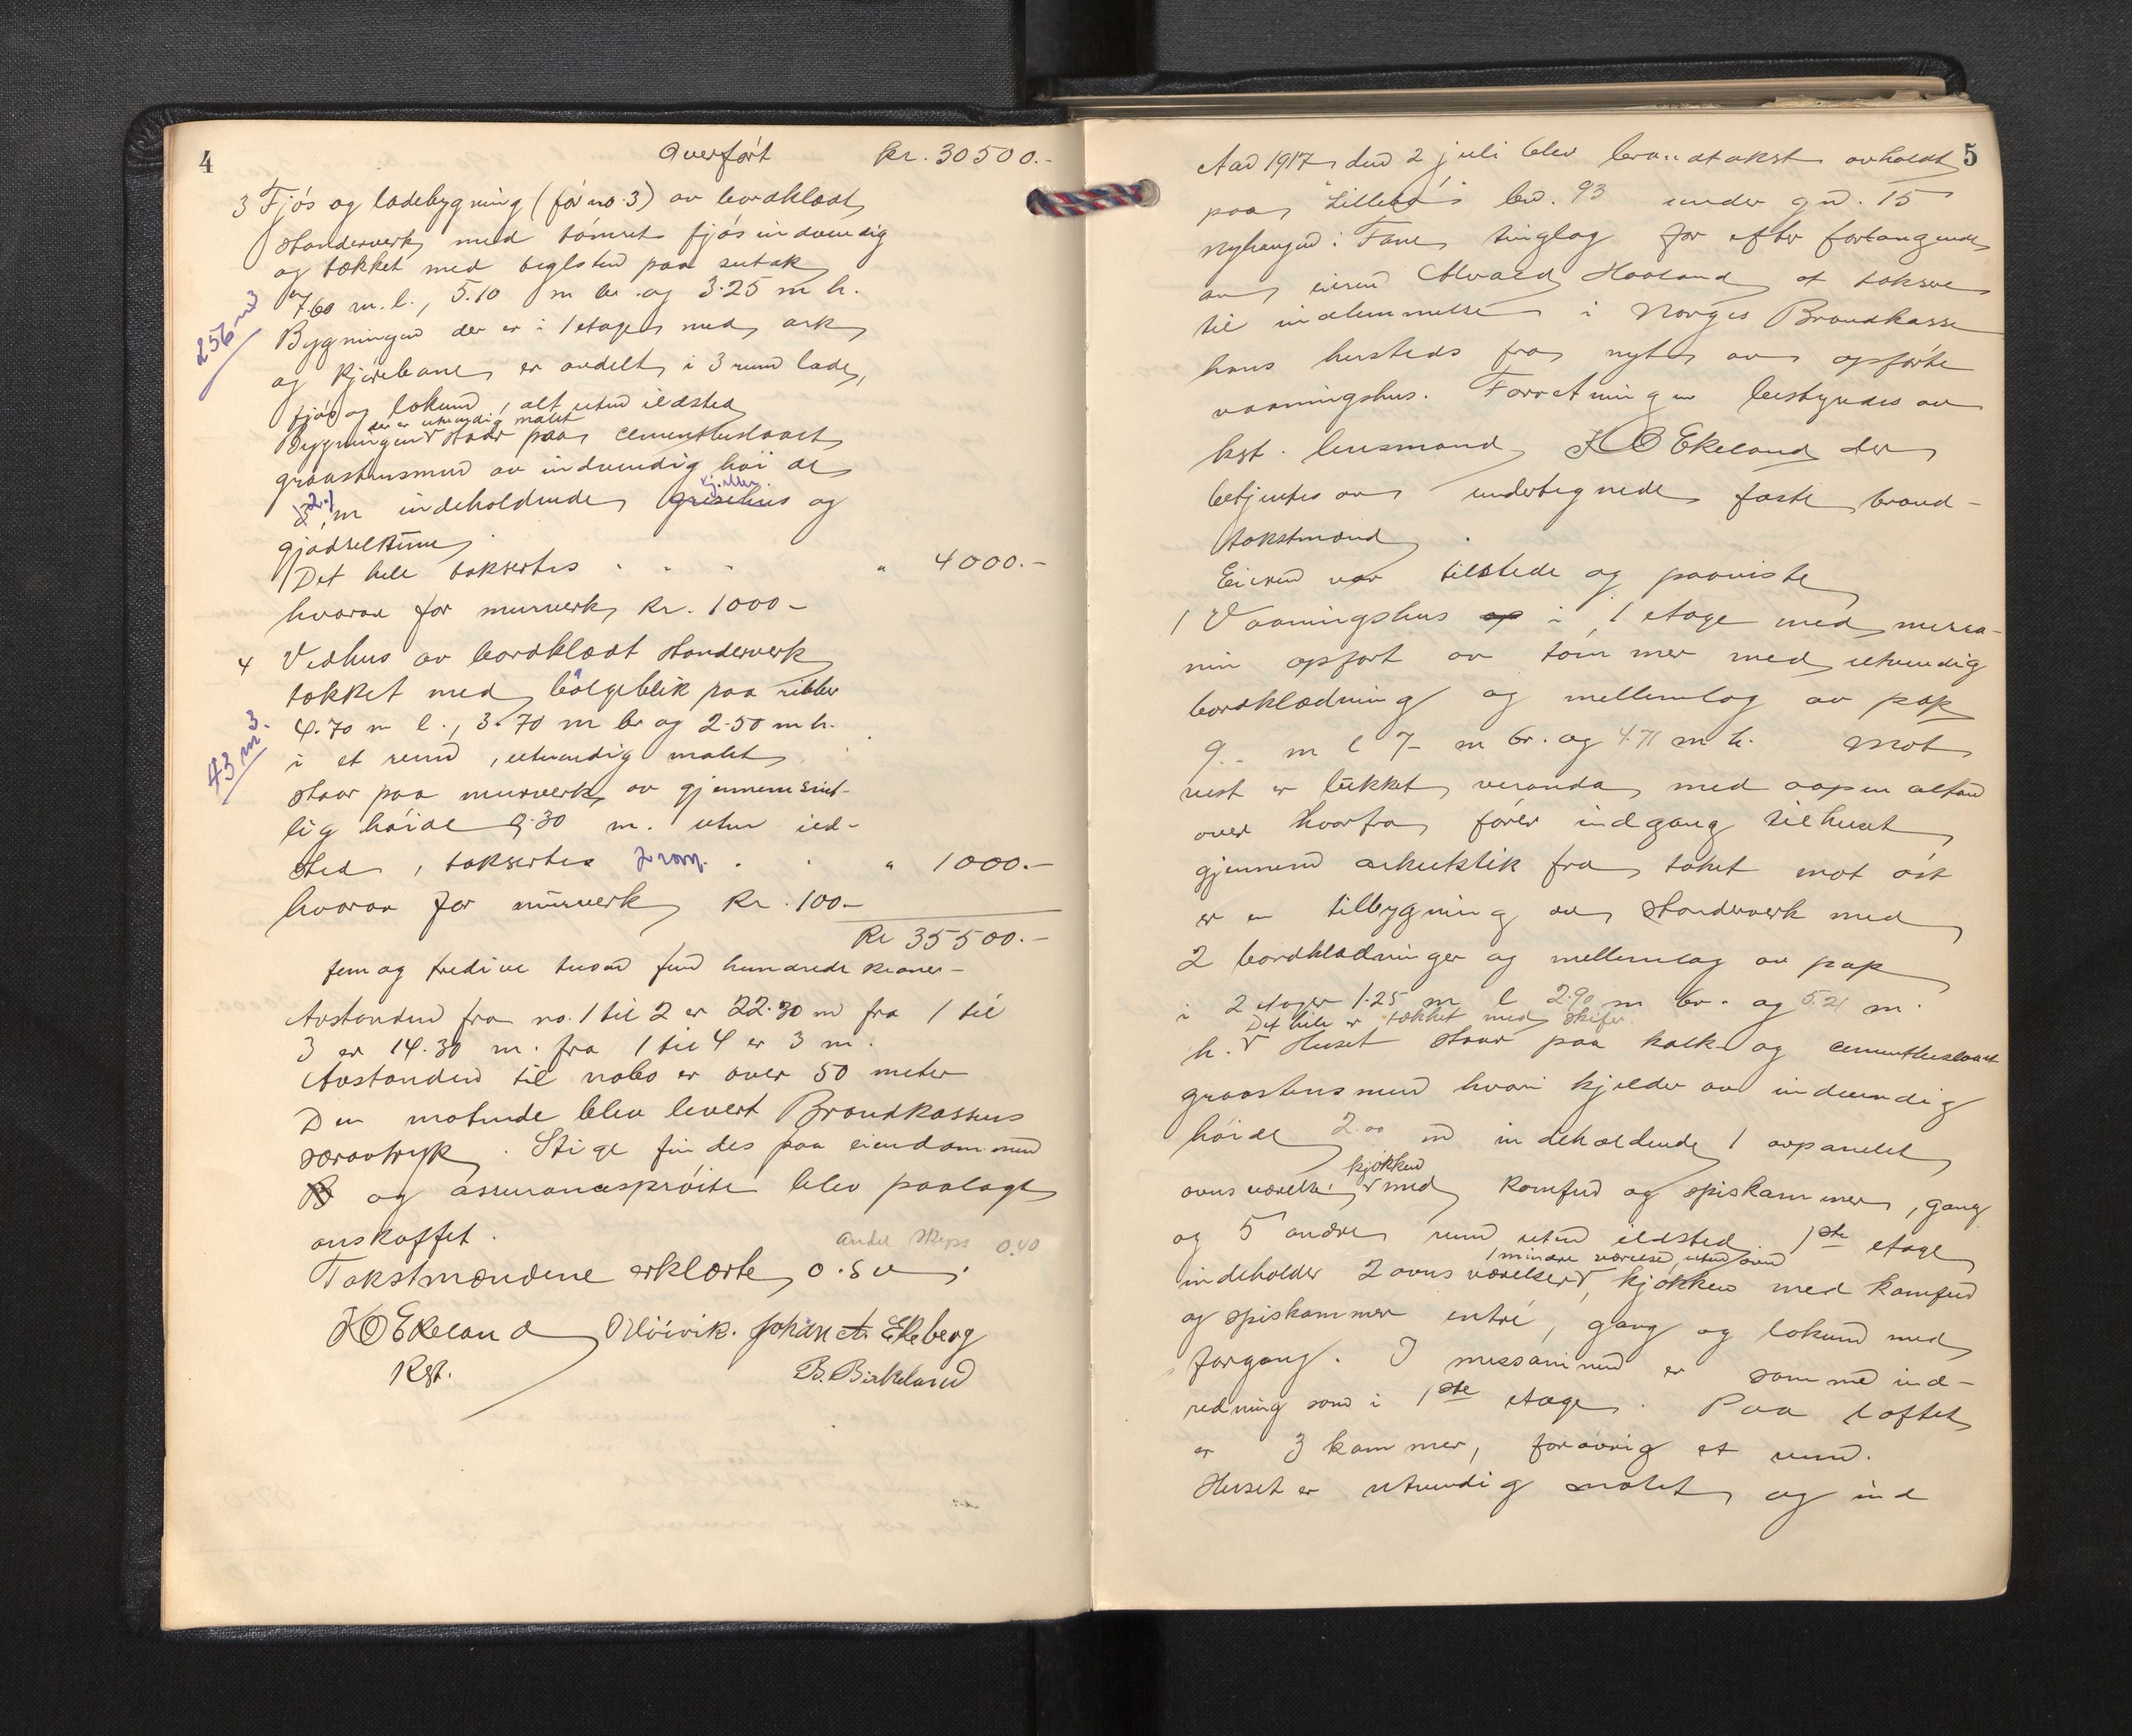 4
Overført Kr. 30500.-
3 Fjøs og ladebygning (før no. 3) av bordklædt
standerverk med tømret fjøs indvendig
og tækket med teglsten paa sutak
7.60 m. l., 5.10 m br. og 3.25 m h.
256 m3
Bygningen der er i 1 etage med ark
og kjørebane er avdelt i 3 rum lade,
fjøs og lokum, alt uten ildsted
der er utvendig malet
Bygningen staar paa cementhuslaat
graastensmur av indvendig høide
2.1 m indeholdende grisehus og
kjelder
gjødselkum.
Det hele takseres " 4000.-
hvorav for murverk Kr. 1000-
4 Vedhus av bordklædt standerverk
tækket med bølgeblik paa ribber
4.70 m l., 3.70 m br og 2.50 m h.
43 m3.
i et rum, utvendig malet
staar paa murverk av gjennemsnit-
lig høide 0.30 m. uten ild-
sted, takseres " 1000.-
hvorav for murverk Kr. 100-
Kr 35500.-
fem og tredive tusen fem hundrede kroner-
Avstanden fra no. 1 til 2 er 22.30 m fra 1 til
3 er 14.30 m. fra 1 til 4 er 3 m.
Avstanden til nabo er over 50 meter
Den møtende blev levert Brandkassens
særavtryk. Stige findes paa eiendommen
og assuransesprøite blev paalagt
anskaffet.
Takstmændene erklærte o.s.v.
0.40
K O Ekeland O Høivik. Johan A. Ekeberg
Kst. B. Birkeland
5
Aar 1917 den 2 juli blev brandtakst avholdt
paa "Lillebø" br. 93 under gn. 15
i Fane tinglag for efter forlangende
av eieren Haaland at taksere
til indlemmelse i Norges Brandkasse
hans husteds fra nyt av opførte
vaaningshus. Forretningen bestyredes av
kst. lensmand K O Ekeland der
betjentes av undertegnede faste brand-
takstmænd.
Eieren var tilstede og paaviste
1 Vaaningshus op i 1 etage med messa-
nin opført av tømmer med utvendig
bordklædning og mellemlag av pap
9.- m l 7- m br. og 4.71 m h. Mot
vest er lukket veranda med aapen altan
over hvorfra fører indgang til huset
gjennem arkutstik fra taket mot øst
er en tilbygning av standerverk med
2 bordklædninger og mellemlag av pap
i 2 etager 1.25 m l 2.90 m br. og 5.21 m.
Det hele er tækket med skifer.
h. Huset staar paa kalk- og cementhuslaat
graastensmur hvori kjelder av indvendig
høide 2.00 m indeholdende 1 avpanelet
kjøkken
ovnsværelse, med komfur og spiskammer, gang
og 5 andre rum uten ildsted. 1ste etage
1 mindre værelse uten ovn
indeholder 2 ovnsværelser, kjøkken med komfur
og spiskammer entré, gang og lokum med
forgang. I messaninen er samme ind-
redning som i 1ste etage. Paa loftet
er 3 kammer, forøvrig et rum.
Huset er utvendig malet og ind